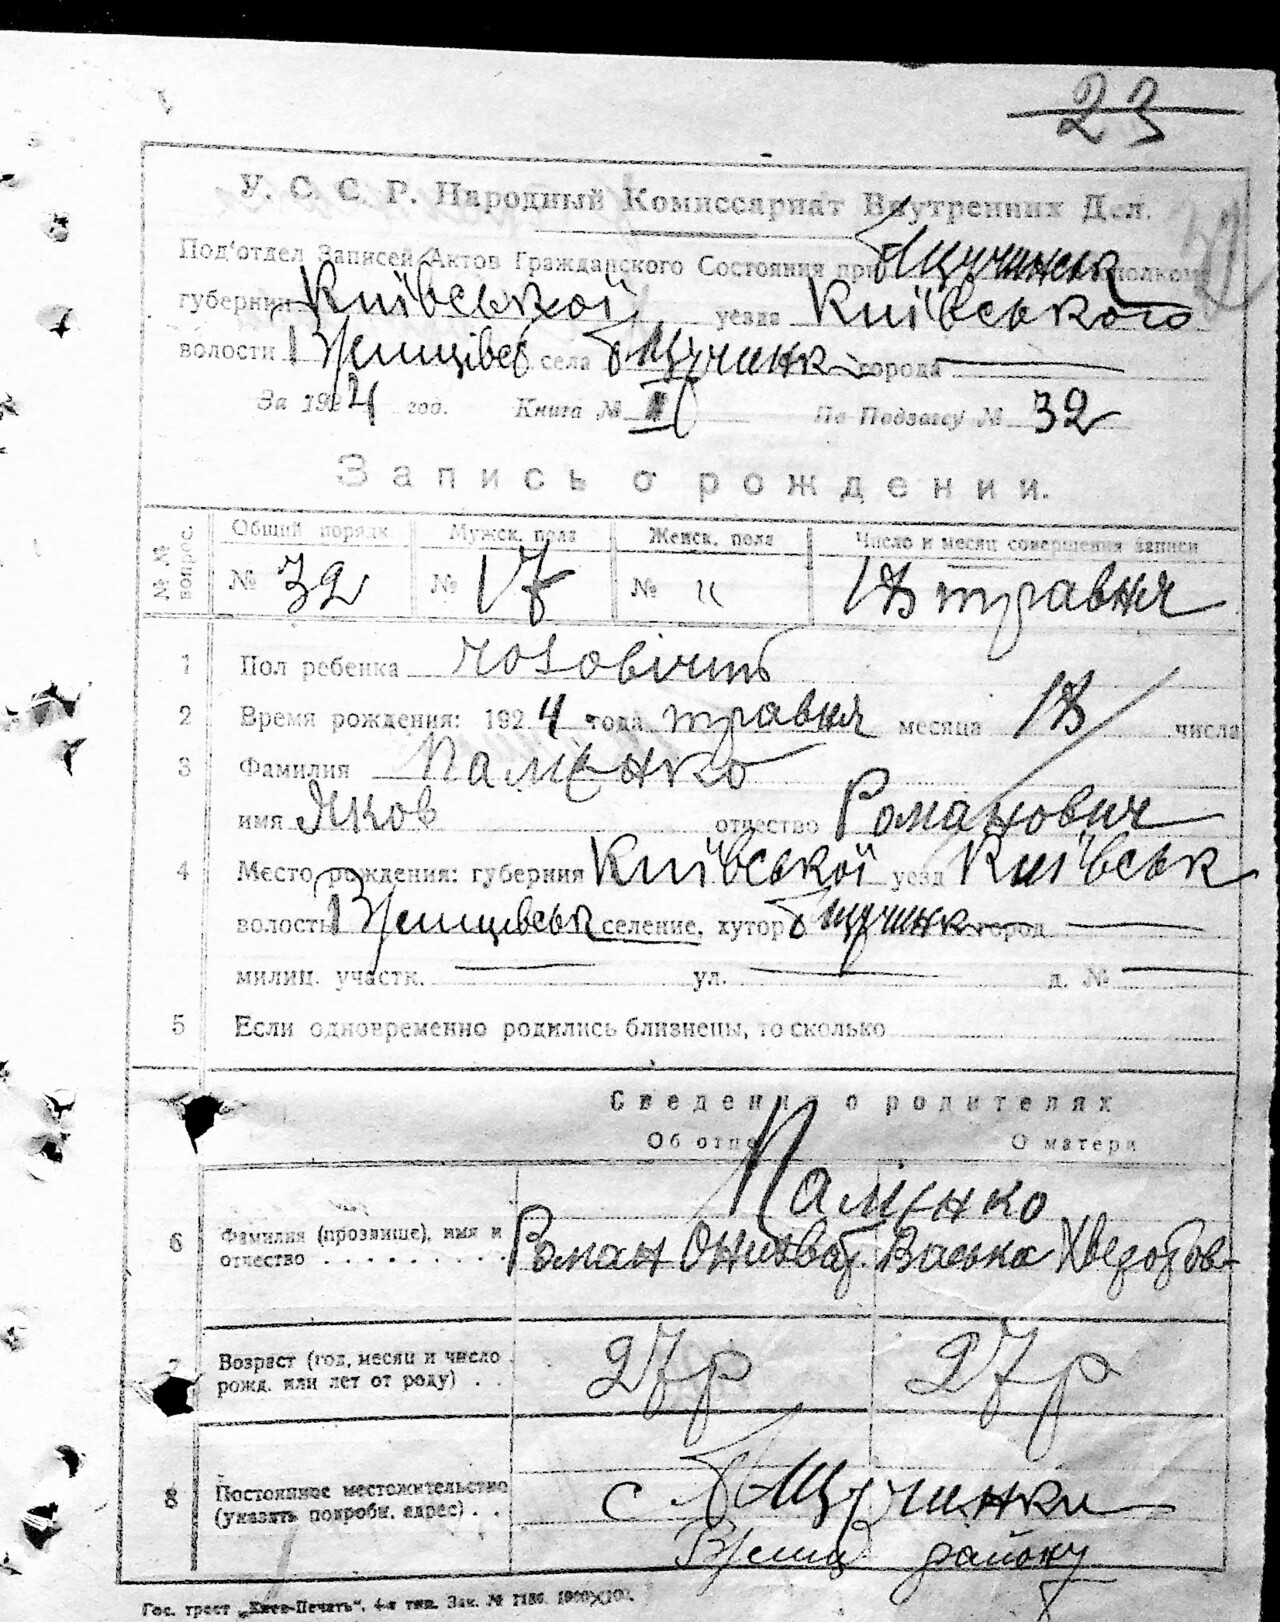 23
У. С. С. Р. Народный Комиссариат Внутренних Дел.
32
Под'отдел Записей Актов Гражданского Состояния при
губернии Київської уезда Київського
волости села города —
За 1924 год. Книга № II По Подзагсу № 32
Запись о рождении.
№ № вопрос. Общий порядк. Мужск. пола Женск. пола Число и месяц совершения записи
№ 32 № 17 № " травня
1 Пол ребенка чоловічт
2 Время рождения: 1924 года травня месяца числа
3 Фамилия
имя Яков отчество Романович
4 Место рождения: губерния Київської уезд Київськ
волость селение, хутор город —
милиц. участк. — ул. — д. № —
5 Если одновременно родились близнецы, то сколько
Сведения о родителях
Об отце О матери
6 Фамилия (прозвище), имя и
отчество . . . . . . . . . Роман
7 Возраст (год, месяц и число
рожд. или лет от роду) . . 27 р 27 р
8 Постоянное местожительство
(указать подробн. адрес) . . с
району
Гос. трест „Киев-Печать“, 4-я тип. Зак. №